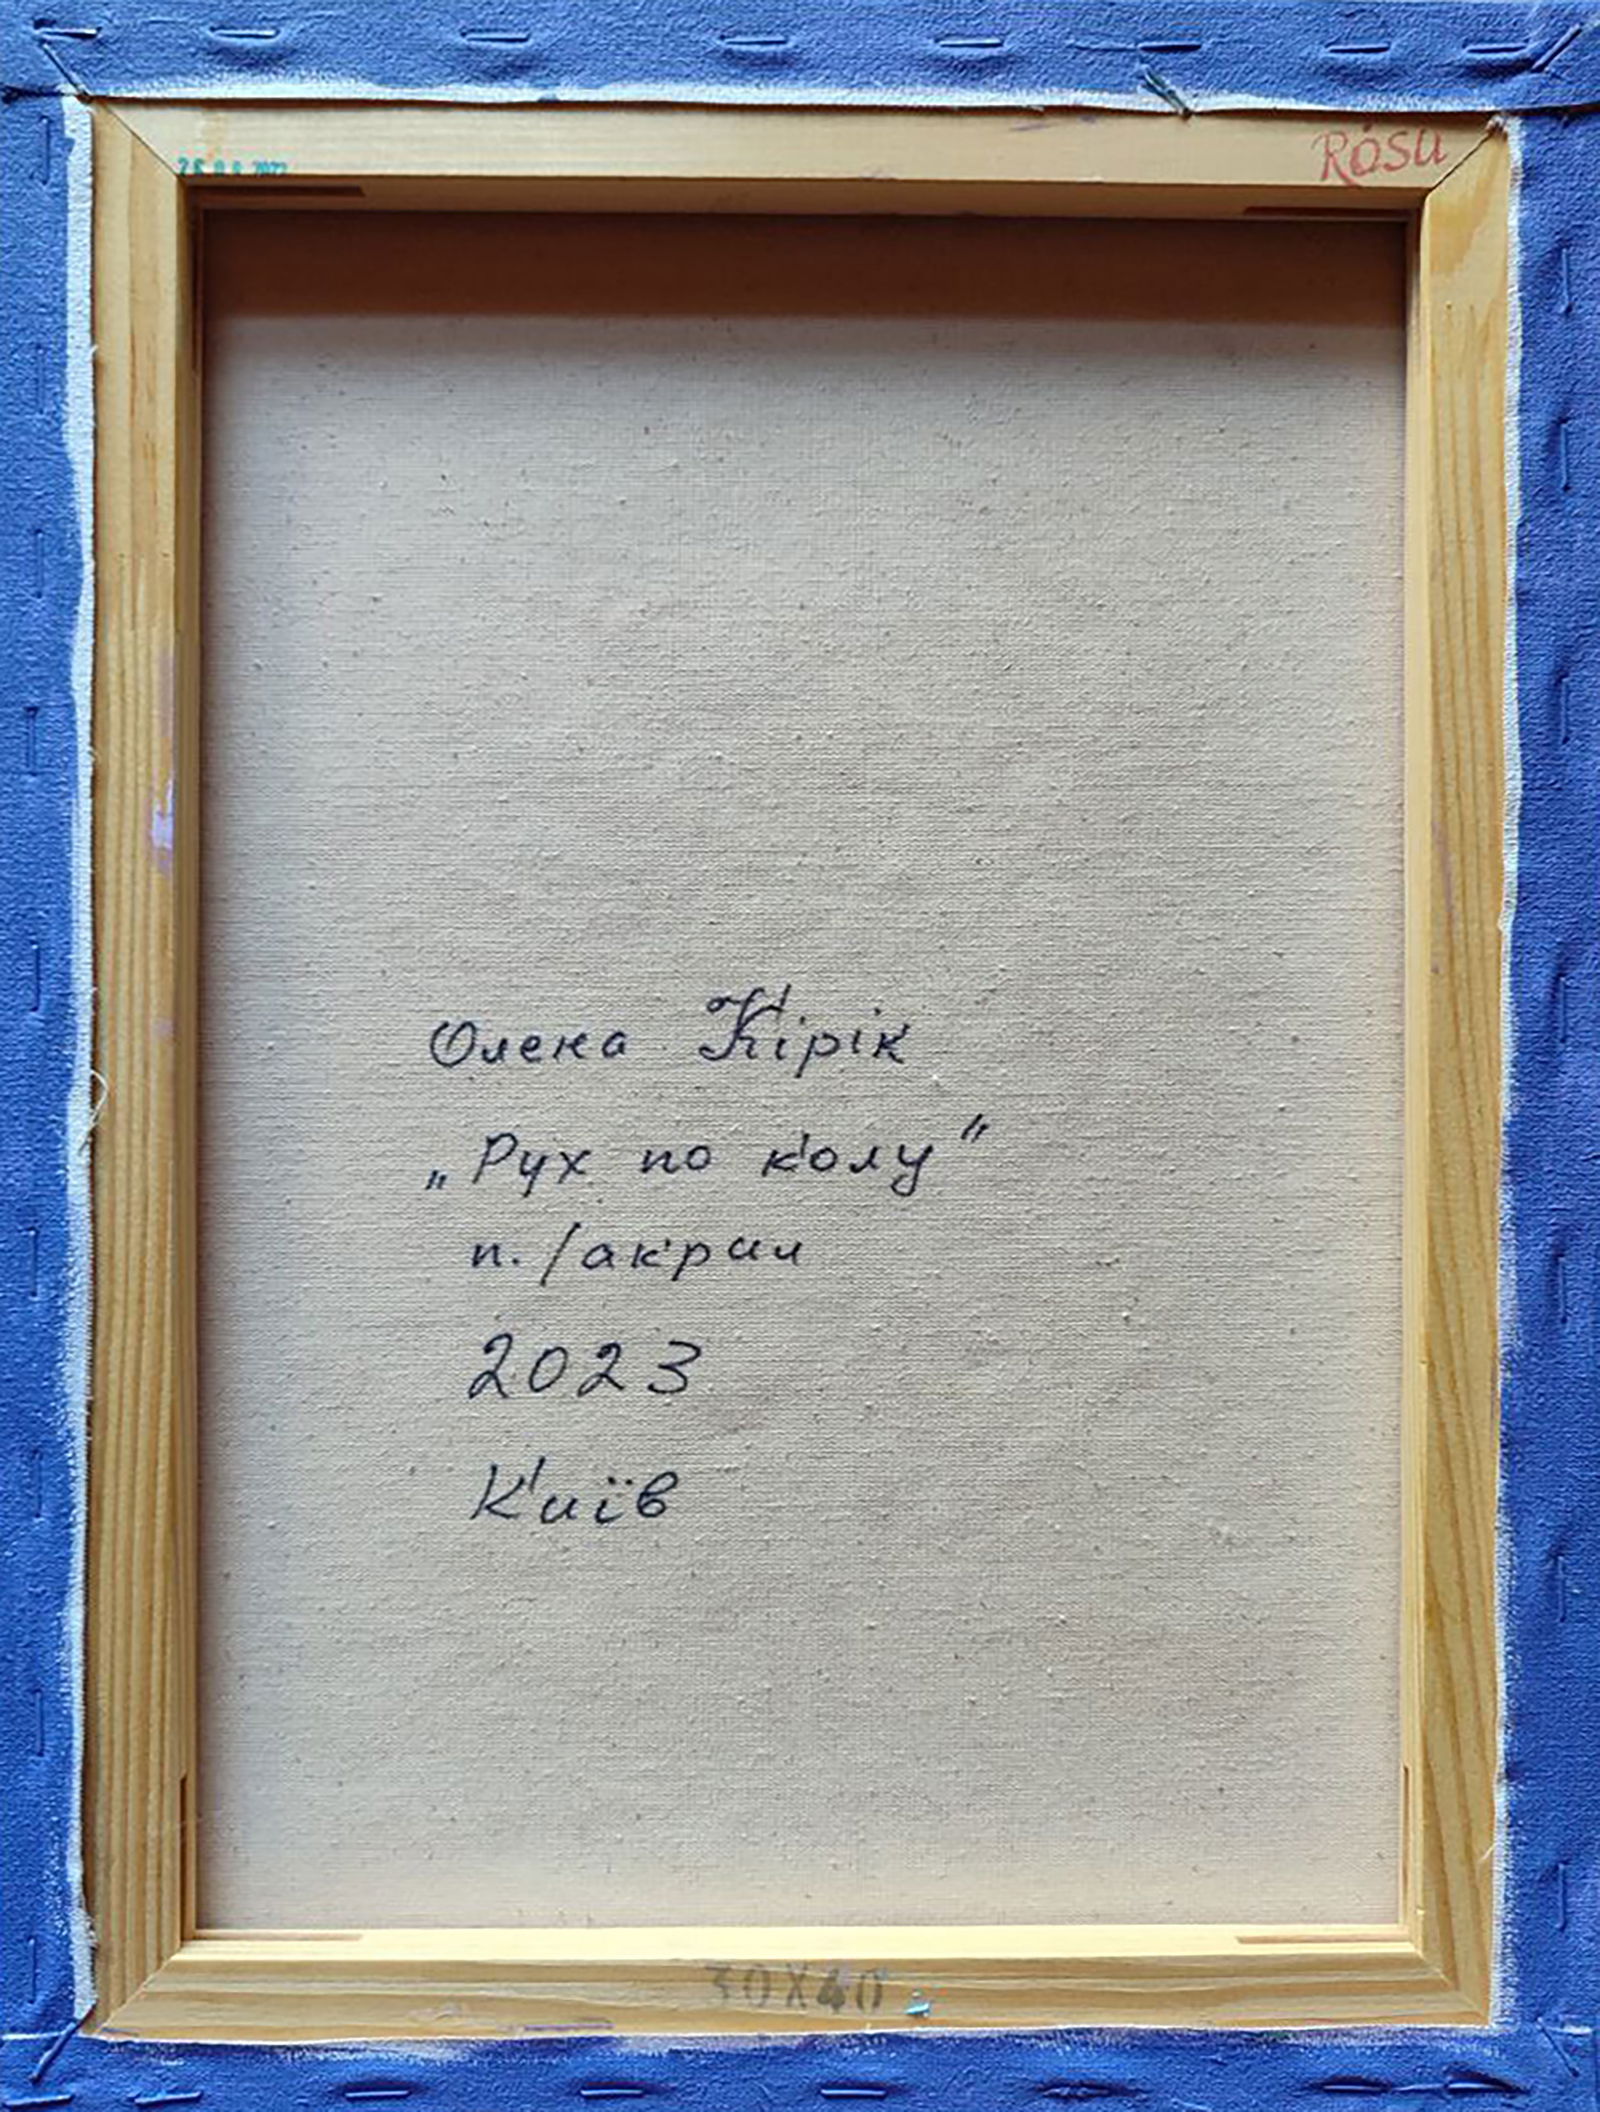 Rósa
Олена Кірік
„Рух по колу"
п./акрил
2023
Київ
30X40